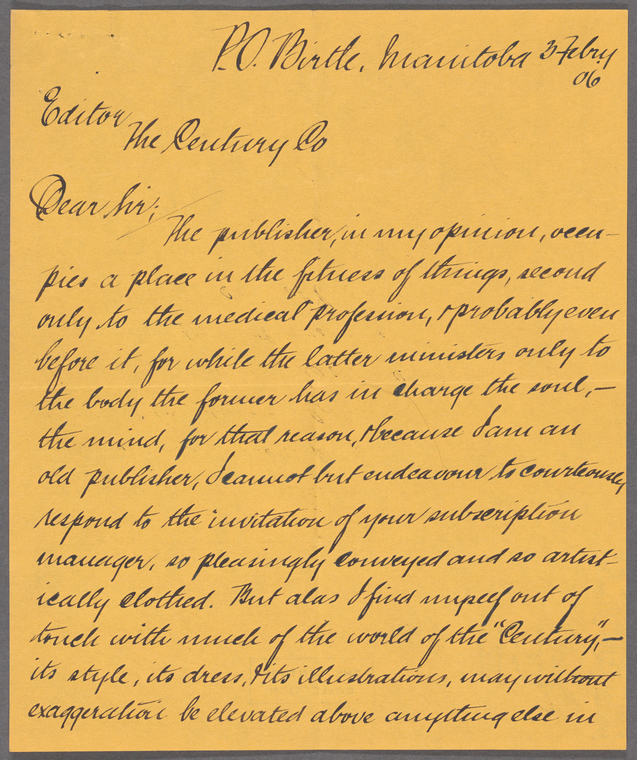 P.O. Birtle, Manitoba 3 Febry
06
Editor
The Century Co
Dear Sir;
The publisher, in my opinion, occu-
pies a place in the fitness of things, second
only to the medical profession, & probably even
before it, for while the latter ministers only to
the body the former has in charge the soul, —
the mind, for that reason, & because I am an
old publisher, I cannot but endeavour to courteously
respond to the invitation of your subscription
manager, so pleasingly conveyed and so artist-
ically clothed. But alas I find myself out of
touch with much of the world of the "Century", —
its style, its dress, & its illustrations, may without
exaggeration be elevated above anything else in